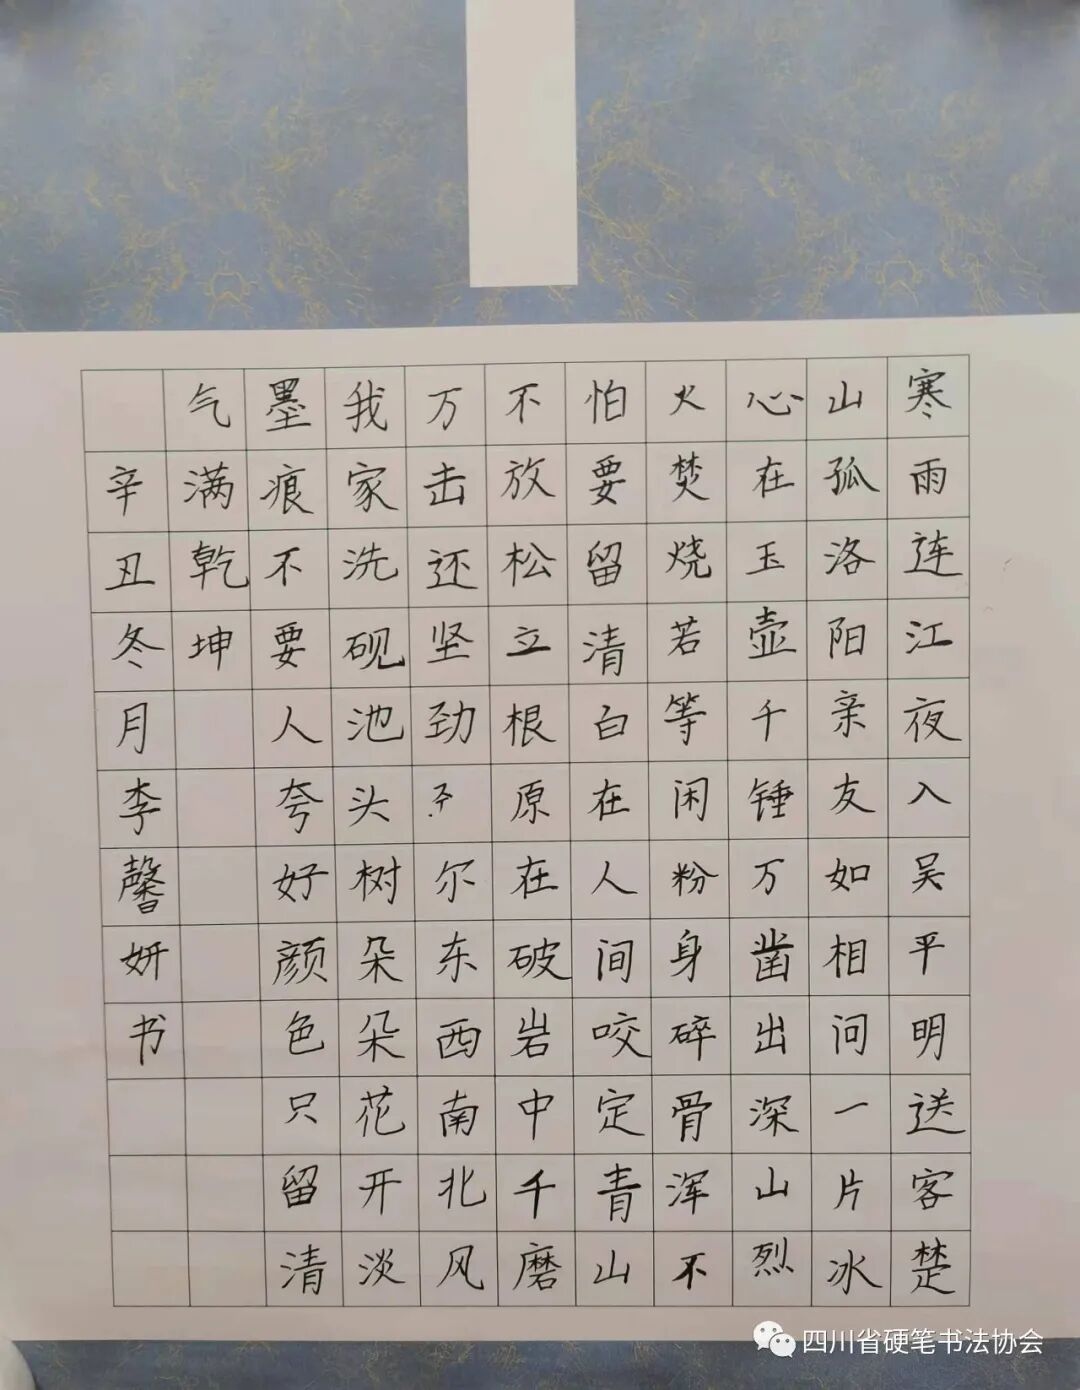 寒雨连江夜入吴平明送客楚
山孤洛阳亲友如相问一片冰
心在玉壶千锤万凿出深山烈
火焚烧若等闲粉身碎骨浑不
怕要留清白在人间咬定青山
不放松立根原在破岩中千磨
万击还坚劲尔东西南北风
我家洗砚池头树朵朵花开淡
墨痕不要人夸好颜色只留清
气满乾坤
辛丑冬月李馨妍书
四川省硬笔书法协会